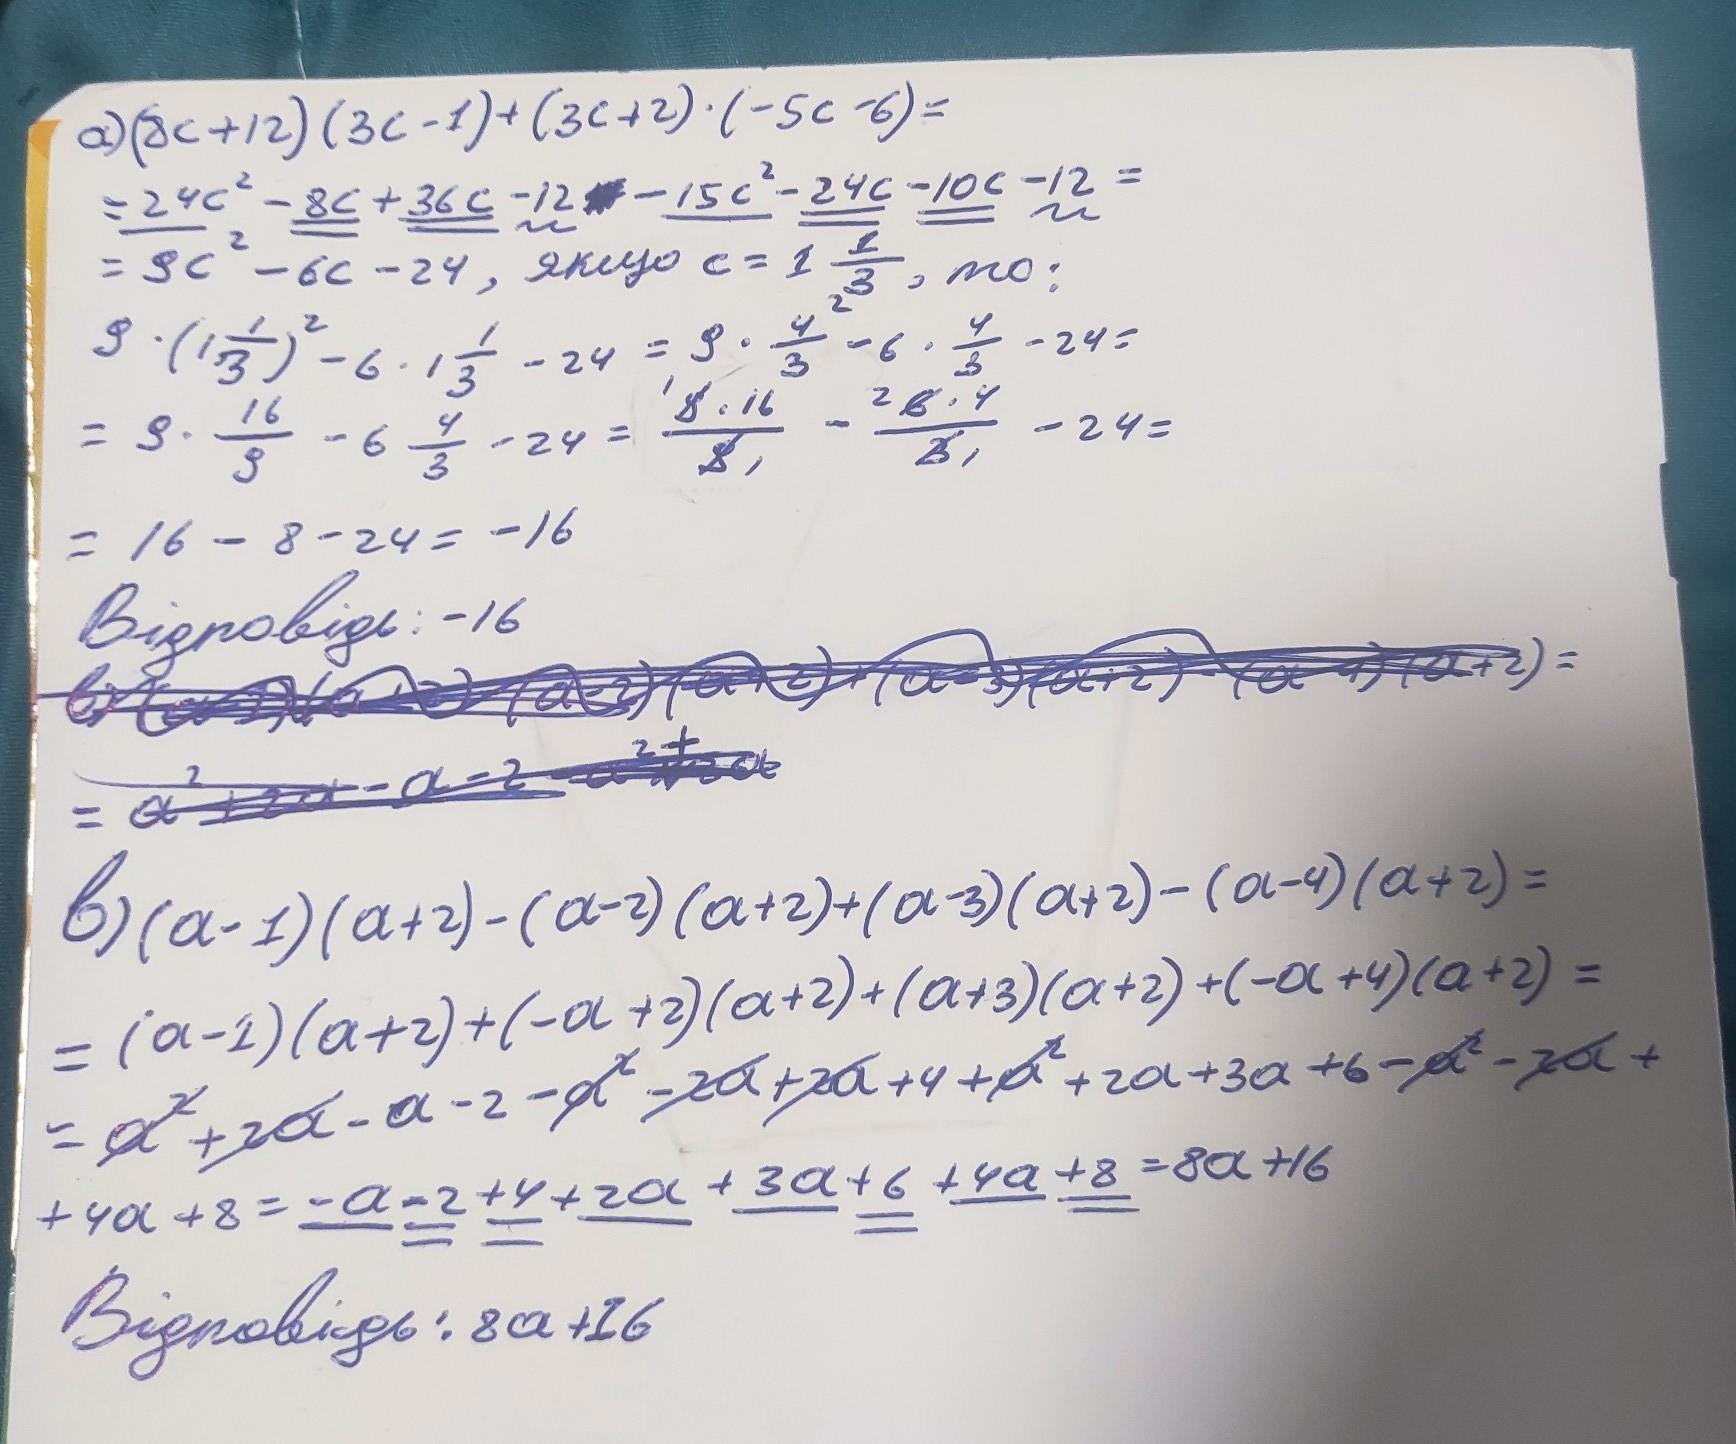 а) (8c+12)(3c-1)+(3c+2)·(-5c-6)=
=24c²-8c+36c-12-15c²-24c-10c-12=
=9c²-6c-24, якщо c=1 1/3, то:
9·(1 1/3)²-6·1 1/3-24=9·4/3²-6·4/3-24=
=9·16/9-6 4/3-24=9·16/9-6·4/3-24=
=16-8-24=-16
Відповідь: -16
в) (a-1)(a+2)-(a-2)(a+2)+(a-3)(a+2)-(a-4)(a+2)=
=(a-1)(a+2)+(-a+2)(a+2)+(a+3)(a+2)+(-a+4)(a+2)=
=a²+2a-a-2-a²-2a+2a+4+a²+2a+3a+6-a²-2a+
+4a+8=-a-2+4+2a+3a+6+4a+8=8a+16
Відповідь: 8a+16